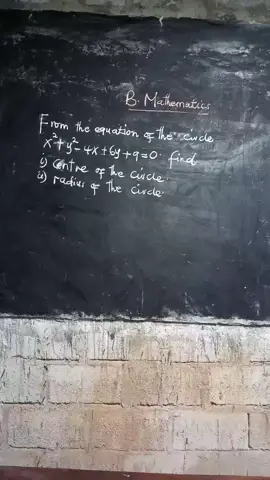 B. Mathematics
From the equation of the circle
x²+y²-4x±6y+9=0. find
i) Centre of the circle.
ii) radius of the circle.